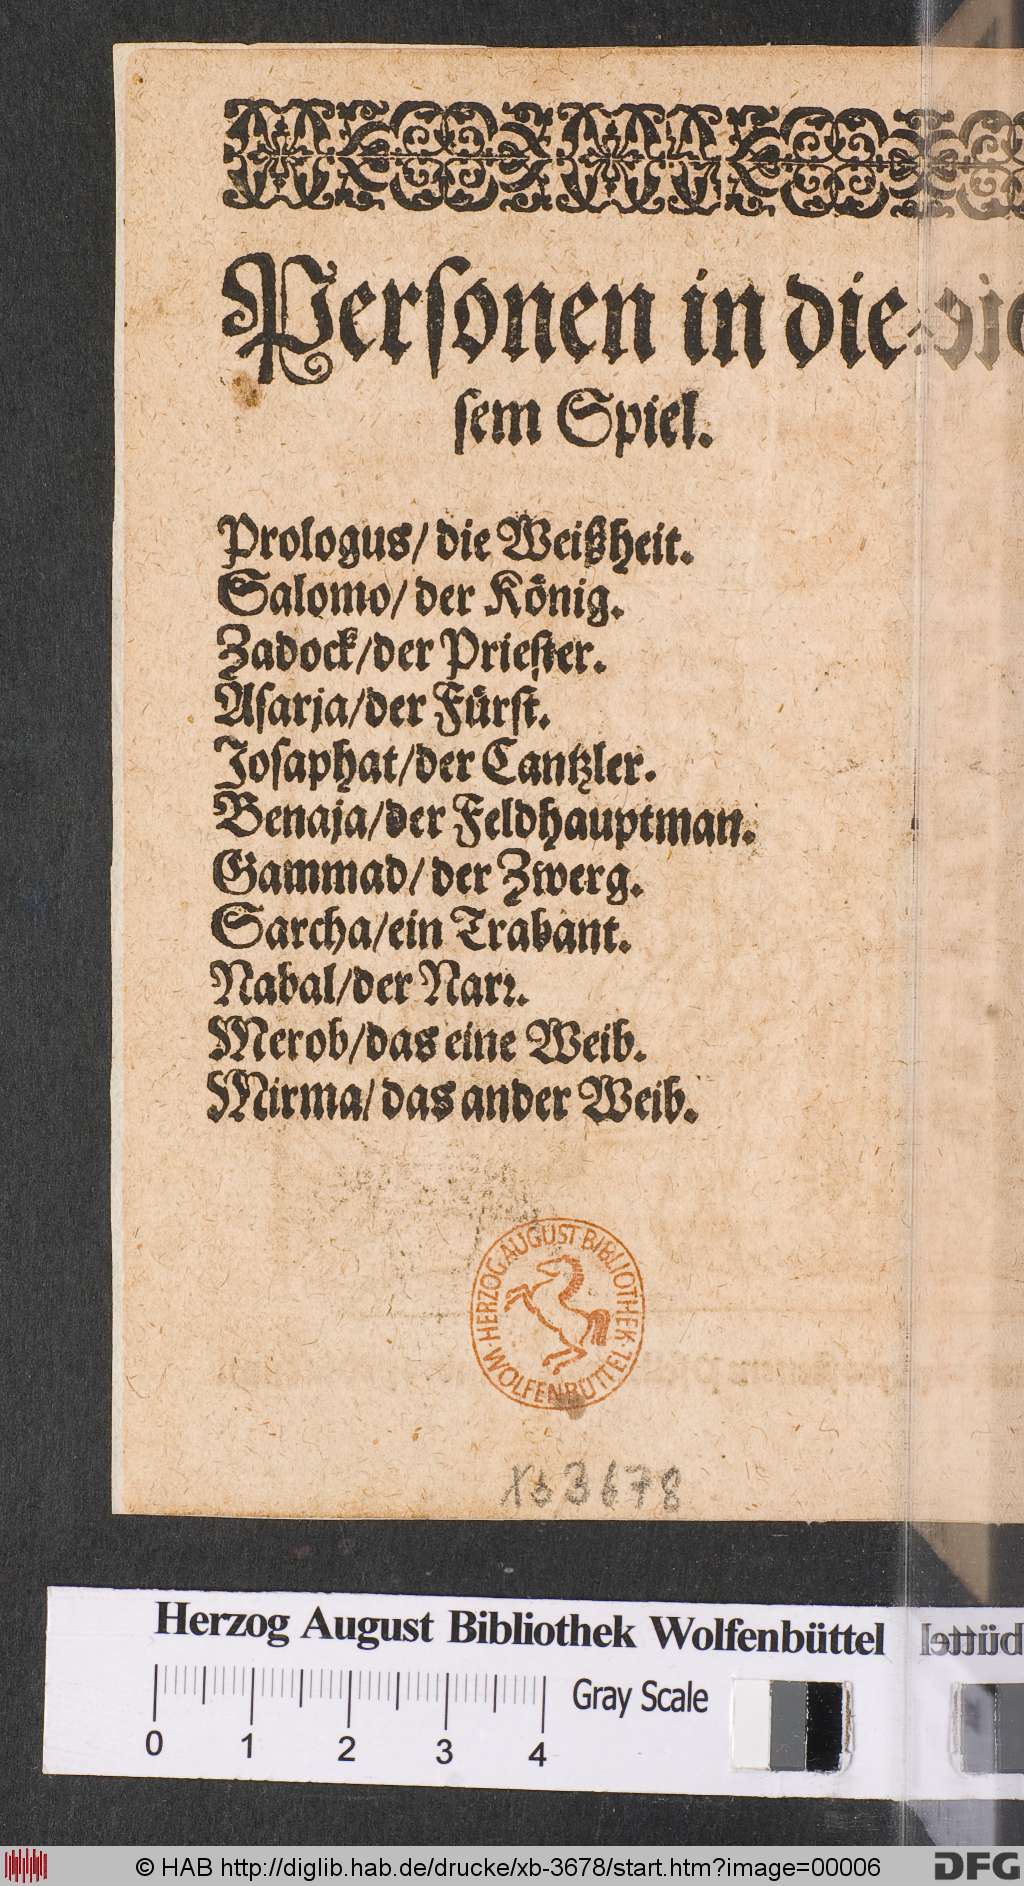 Personen in die⸗
sem Spiel.
Prologus/ die Weißheit.
Salomo/ der König.
Zadock/der Priester.
Asarja/der Fürst.
Josaphat/der Cantzler.
Benaja/der Feldhauptman.
Gammad/ der Zwerg.
Sarcha/ein Trabant.
Nabal/der Narr.
Merob/das eine Weib.
Mirma/ das ander Weib.
HERZOG AUGUST BIBLIOTHEK
WOLFENBÜTTEL
Xb 3678
Herzog August Bibliothek Wolfenbüttel
Gray Scale
0 1 2 3 4
© HAB http://diglib.hab.de/drucke/xb-3678/start.htm?image=00006
DFG